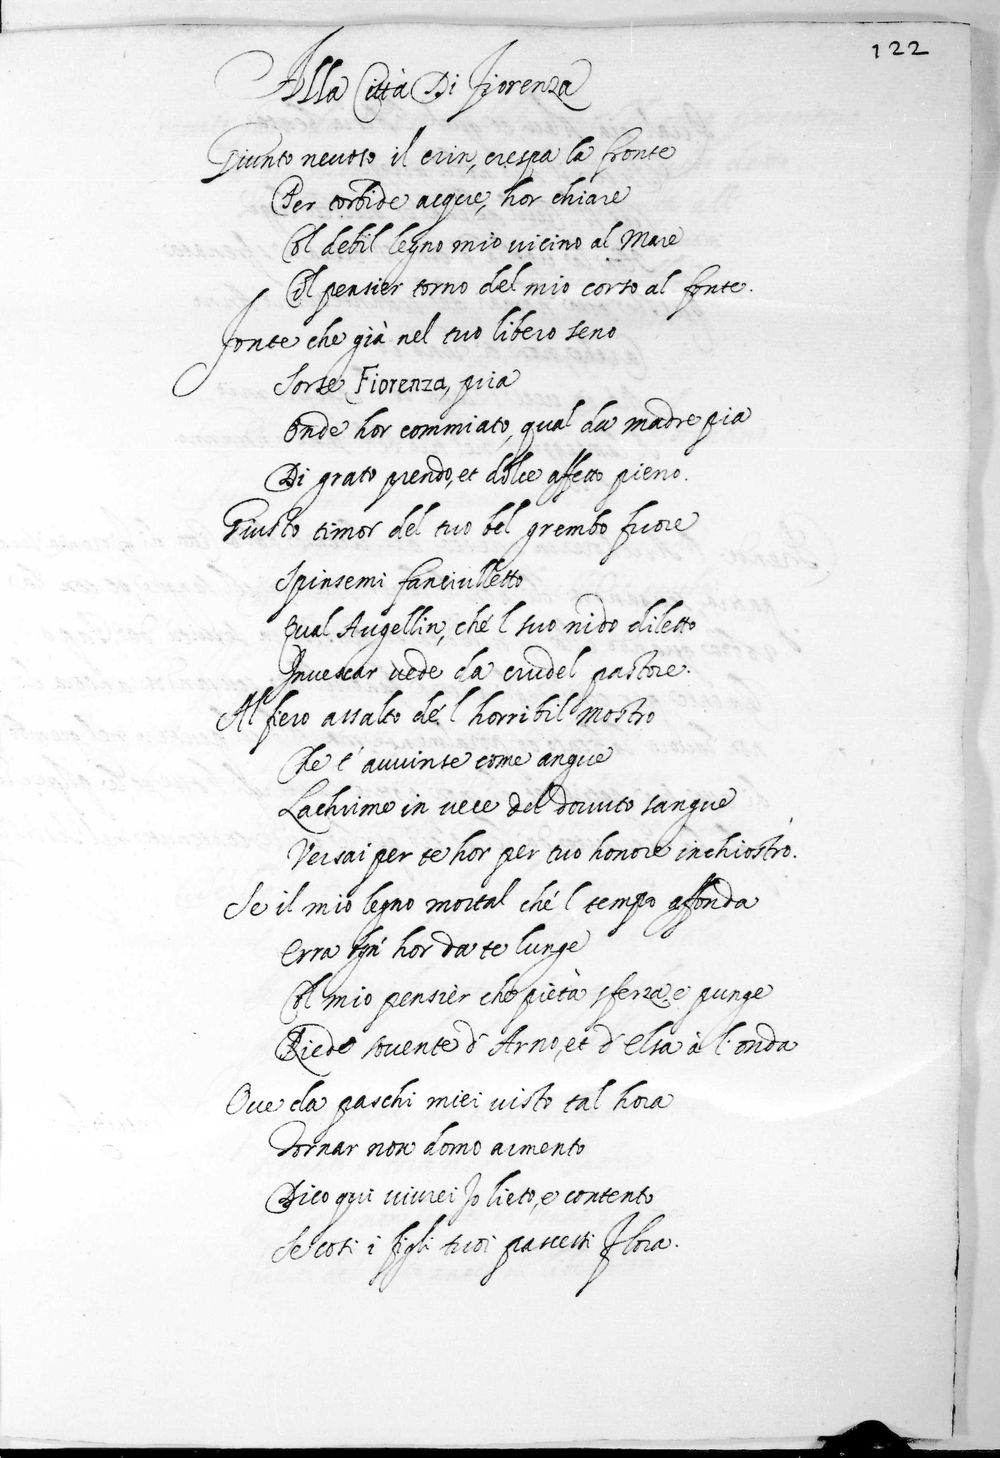 122
Alla Città Di Fiorenza
Giunto neuoso il crin, crespa la fronte
Per torbide acque, hor chiare
Col debil legno mio uicino al Mare
Col pensier torno del mio corso al fonte.
Fonte che già nel tuo libero seno
Sorse Fiorenza, pria
Onde hor commiato, qual da madre pia
Di grato prendo, et dolce affetto pieno.
Giusto timor del tuo bel grembo fuore
Spinsemi fanciulletto
Qual Augellin, ché l suo nido diletto
Inuescar uede da crudel pastore.
Al fiero assalto dé l horribil Mostro
Che t' auuinse come angue
Lachrime in uece del douuto sangue
Versai per te hor per tuo honore inchiostro.
Se il mio legno mortal ché l tempo affonda
Erra ogn' hor da te lunge
Col mio pensièr che pietà sferza, e punge
Riede souente d' Arno, et d' Elsa à l' onda
Oue da paschi miei uisto tal hora
Tornar non domo armento
Dico qui uiurei Io lieto, e contento
Se cosi i figli tuoi pascesti Flora.